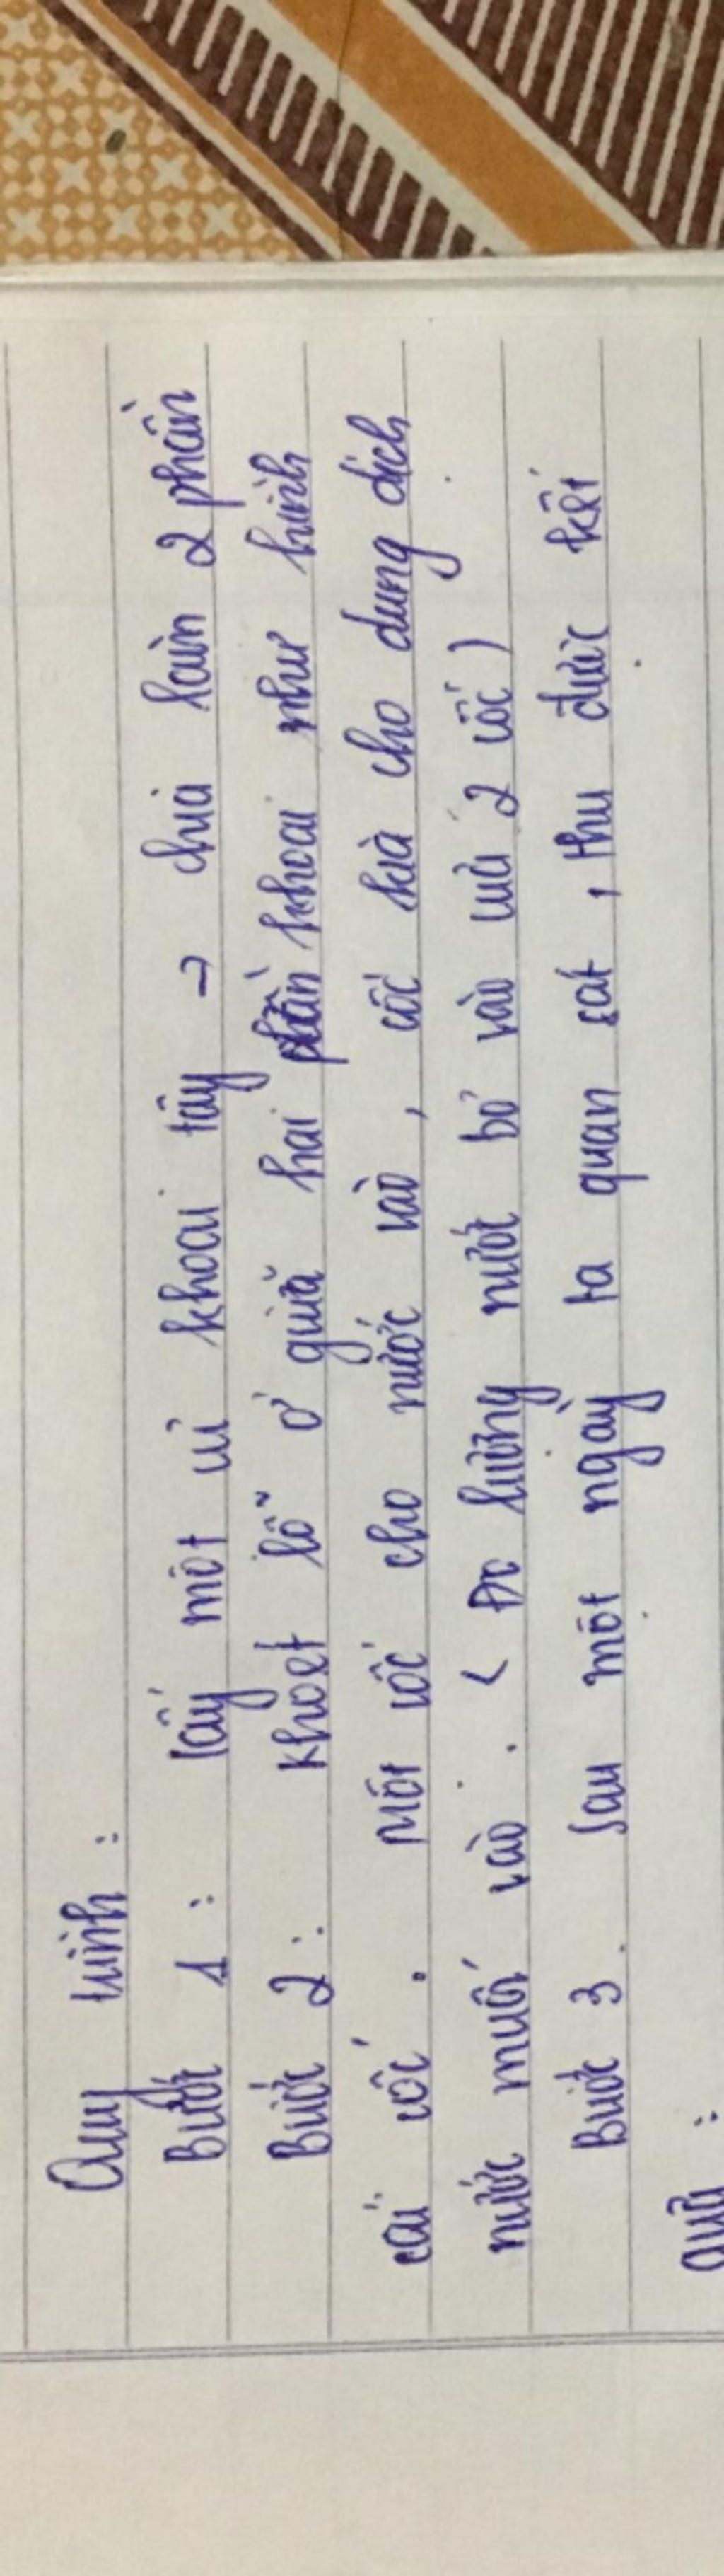 Quy trình :
Bước 1 : lấy một củ khoai tây → chia làm 2 phần
Bước 2 : Khoét lỗ ở giữa hai phần khoai như hình
cái cốc . Một cốc cho nước vào , cốc kia cho dung dịch
nước muối vào . < Đo lượng nước bỏ vào của 2 cốc )
Bước 3 . Sau một ngày ta quan sát , thu được kết
quả :